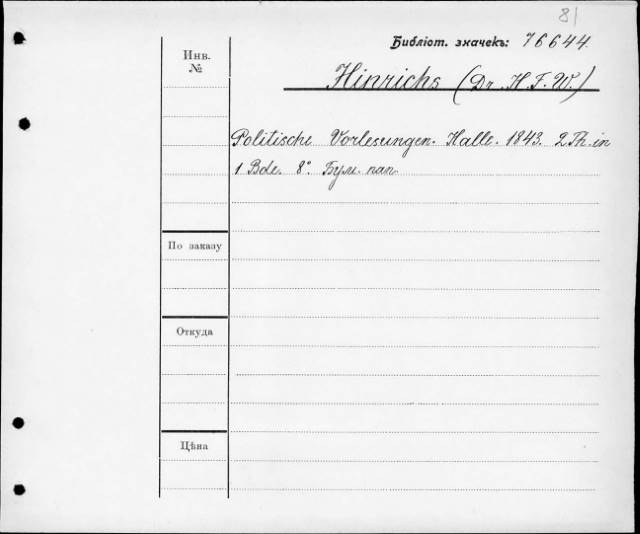 81
Библіот. значекъ: 76644.
Инв.
№
Hinrichs (Dr. H. F. W.)
Politische Vorlesungen. Halle. 1843. 2 Th. in
1 Bde. 8°. Бум. пап.
По заказу
Откуда
Цѣна